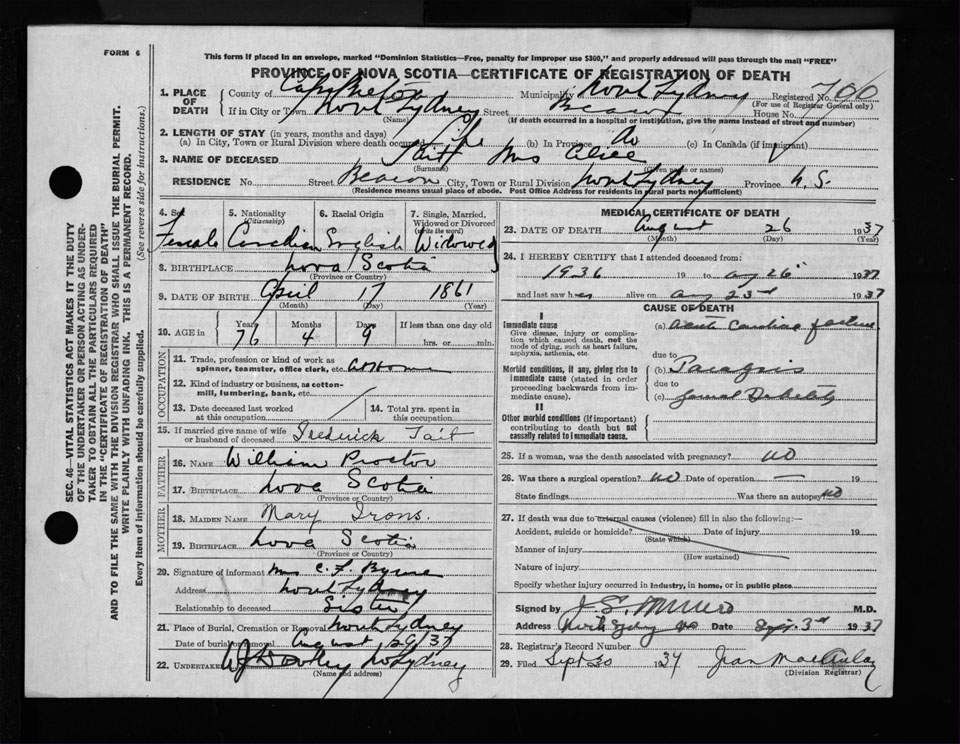 FORM 6
This form if placed in an envelope, marked "Dominion Statistics—Free, penalty for improper use $300," and properly addressed will pass through the mail "FREE"
PROVINCE OF NOVA SCOTIA—CERTIFICATE OF REGISTRATION OF DEATH
SEC. 46—VITAL STATISTICS ACT MAKES IT THE DUTY
OF THE UNDERTAKER OR PERSON ACTING AS UNDER-
TAKER TO OBTAIN ALL THE PARTICULARS REQUIRED
IN THE "CERTIFICATE OF REGISTRATION OF DEATH"
AND TO FILE THE SAME WITH THE DIVISION REGISTRAR WHO SHALL ISSUE THE BURIAL PERMIT.
WRITE PLAINLY WITH UNFADING INK. THIS IS A PERMANENT RECORD.
Every item of information should be carefully supplied. (See reverse side for instructions.)
1. PLACE OF DEATH County of Cape Breton Municipality North Sydney Registered No. 700
(For use of Registrar General only)
If in City or Town North Sydney Street Beacon House No.
(Name) (If death occurred in a hospital or institution, give name instead of street and number)
2. LENGTH OF STAY (in years, months and days)
(a) In City, Town or Rural Division where death occurred Life (b) In Province do (c) In Canada (if immigrant)
3. NAME OF DECEASED Tait Mrs Alice
(Surname) (Given name or names)
RESIDENCE No. Street Beacon City, Town or Rural Division North Sydney Province N.S.
(Residence means usual place of abode. Post Office Address for residents in rural parts not sufficient)
4. Sex 5. Nationality (Citizenship) 6. Racial Origin 7. Single, Married, Widowed or Divorced (write the word)
Female Canadian English Widowed
8. BIRTHPLACE Nova Scotia
(Province or Country)
9. DATE OF BIRTH April 17 1861
(Month) (Day) (Year)
10. AGE in Years Months Days If less than one day old
76 4 9 hrs. or min.
OCCUPATION
11. Trade, profession or kind of work as spinner, teamster, office clerk, etc. At Home
12. Kind of industry or business, as cotton-mill, lumbering, bank, etc.
13. Date deceased last worked at this occupation 14. Total yrs. spent in this occupation
15. If married give name of wife or husband of deceased Frederick Tait
FATHER
16. NAME William Proctor
17. BIRTHPLACE Nova Scotia
(Province or Country)
MOTHER
18. MAIDEN NAME Mary Irons.
19. BIRTHPLACE Nova Scotia
(Province or Country)
20. Signature of informant Mrs C. F. Byrne
Address North Sydney
Relationship to deceased Sister
21. Place of Burial, Cremation or Removal North Sydney
Date of burial or removal August 29/37
22. UNDERTAKER No Sydney
(Name and address)
MEDICAL CERTIFICATE OF DEATH
23. DATE OF DEATH August 26 1937
(Month) (Day) (Year)
24. I HEREBY CERTIFY that I attended deceased from:
1936 19 to Aug 26" 1937
and last saw her alive on Aug 23rd 1937
CAUSE OF DEATH
I
Immediate cause (a) Acute Cardiac failure
Give disease, injury or complication which caused death, not the mode of dying, such as heart failure, asphyxia, asthenia, etc.
due to
Morbid conditions, if any, giving rise to immediate cause (stated in order proceeding backwards from immediate cause). (b)
due to
(c)
II
Other morbid conditions (if important) contributing to death but not causally related to immediate cause.
25. If a woman, was the death associated with pregnancy? NO
26. Was there a surgical operation? NO Date of operation — 19
State findings Was there an autopsy NO
27. If death was due to external causes (violence) fill in also the following:—
Accident, suicide or homicide? Date of injury 19
(State which)
Manner of injury
(How sustained)
Nature of injury
Specify whether injury occurred in industry, in home, or in public place
Signed by M.D.
Address North Sydney NS Date Sept. 3rd 1937
28. Registrar's Record Number
29. Filed Sept 30 1937 Jean MacAulay
(Division Registrar)